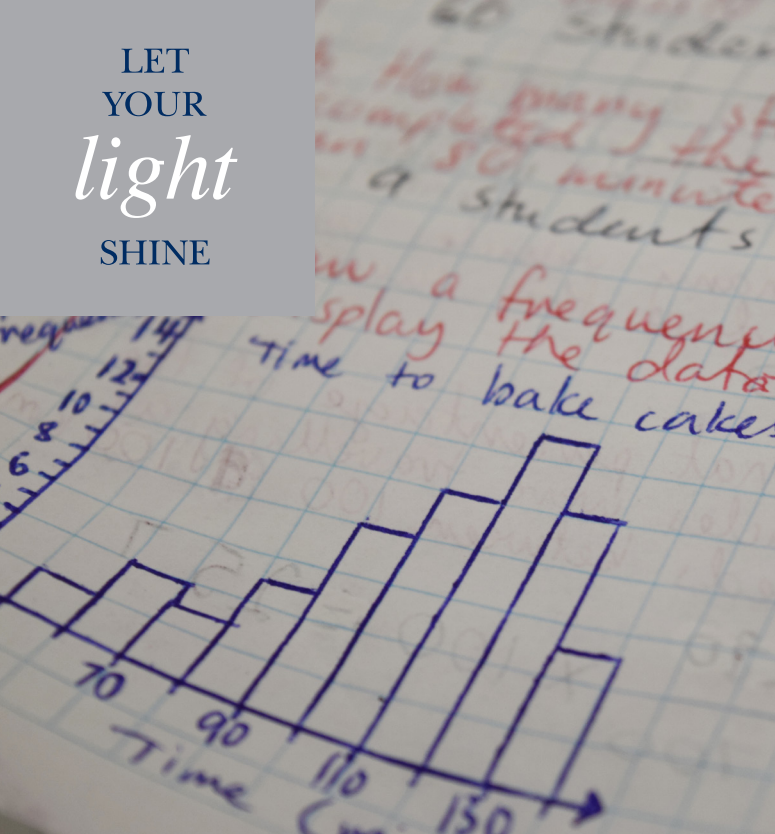 LET
YOUR
light
SHINE
60 studen
How many st
completed the
an 80 minute
9 students
w a frequenc
splay the data
Time to bake cakes
requen
14
12
10
8
6
70
90
110
130
Time (m